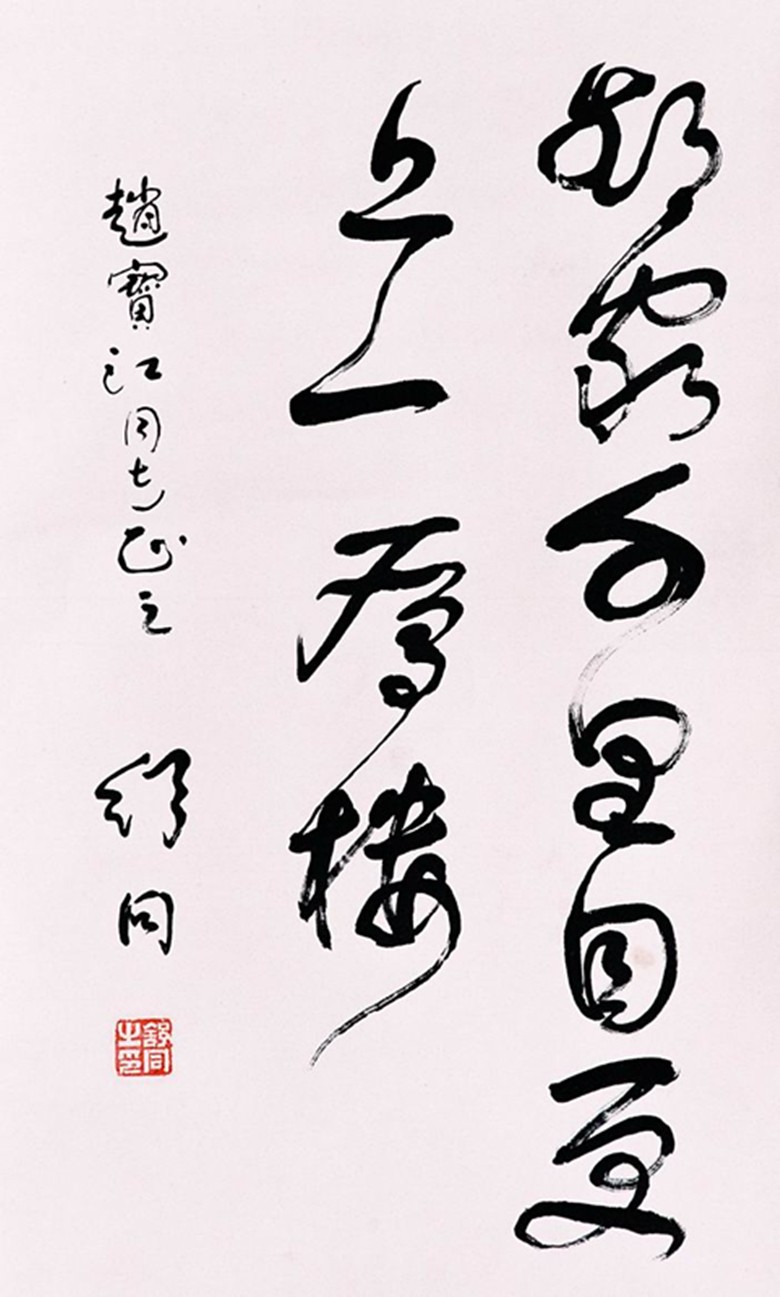 欲窮千里目更
上一層樓
趙寶江同志正之 舒同
舒同之印